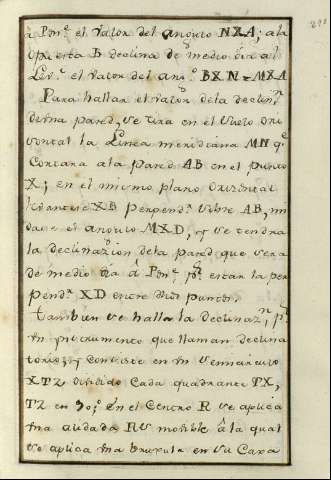 â Pon.te el valor del angulo NXA; a la
opuesta B declina de medio dia al
Lev.te el valor del ang.o BXN = MXA
Para hallar el valor de la declin.n
de una pared, se tira en el suelo ori
zontal la Linea meridiana MN q.e
Cortara a la pared AB en el punto
X; en el mismo plano Orizontal
levantese XD perpend.r sobre AB, mi
dase el angulo MXD, y se tendra
la declinazion de la pared que sera
de medio dia â Pon.te p.r estar la per
pend.r XD entre dhos puntos.
Tambien se halla la declinaz.n p.r
un ynstrumento que llaman declina
torio, y consiste en un semicirculo
XTZ dividido cada quadrante TX,
TZ en 90; En el Centro R se aplica
una alidada RV movible â la qual
se aplica una bruxula en su Caxa